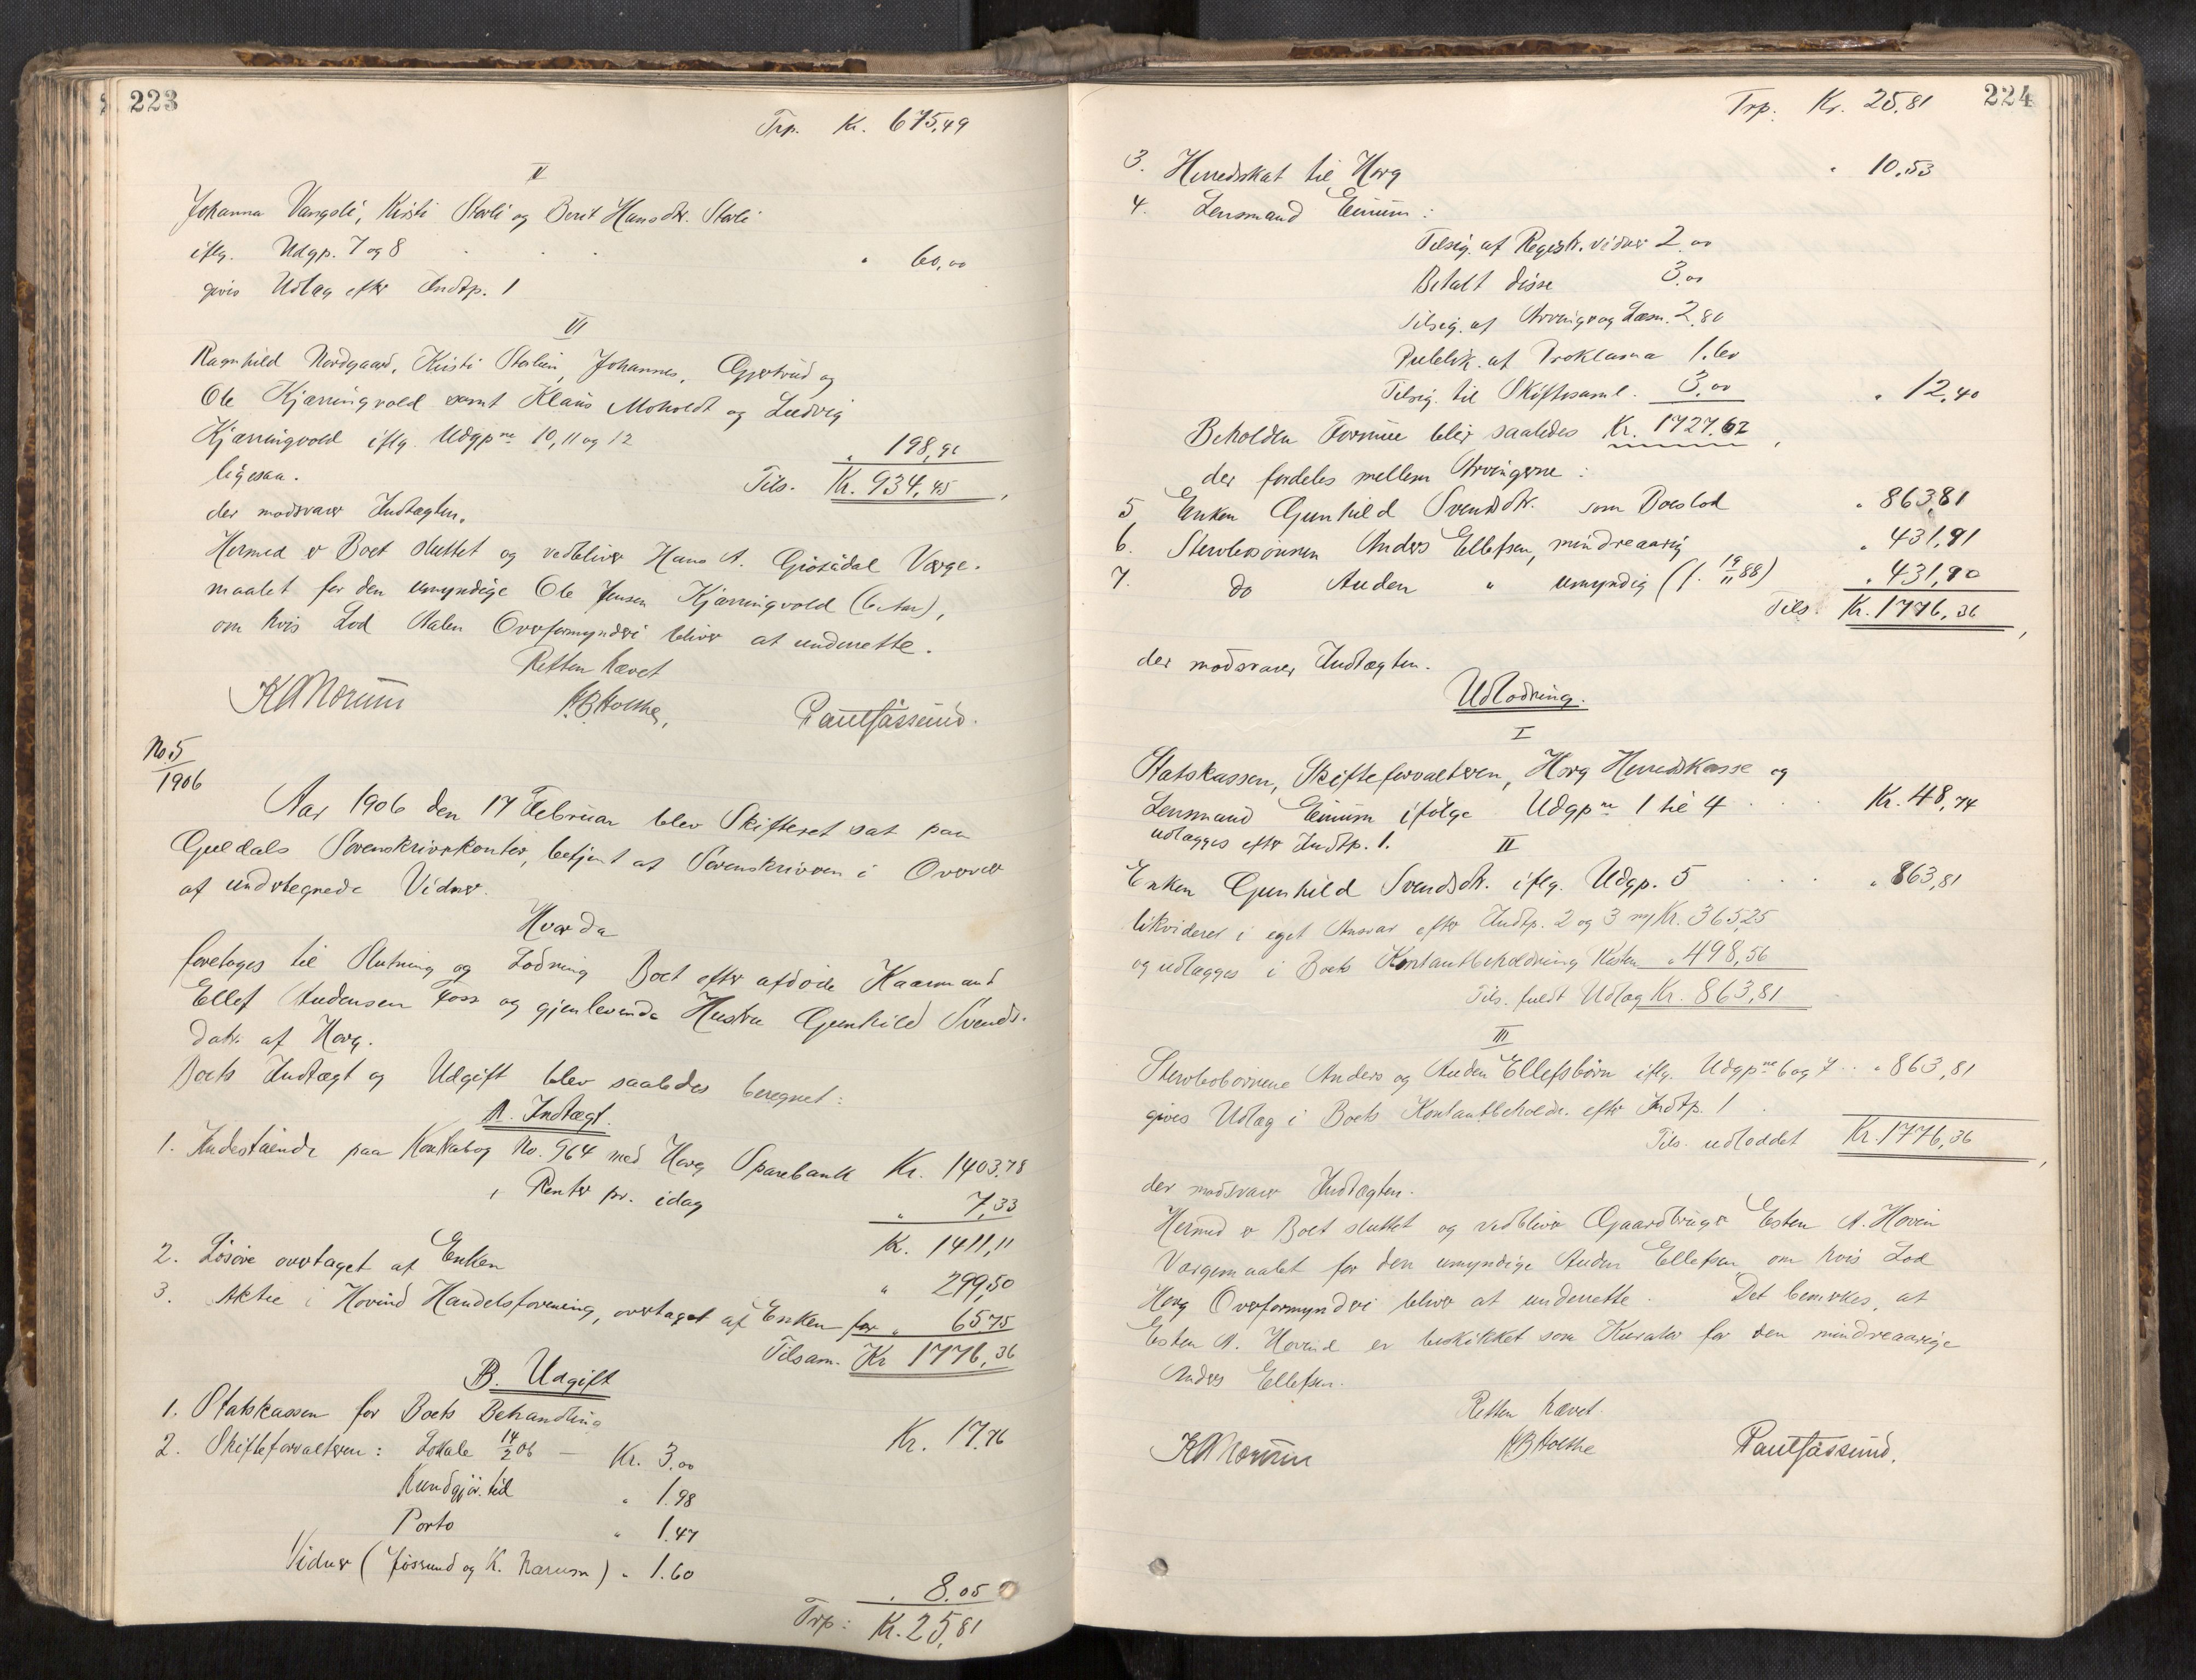 223
Trp. Kr. 675,49
V
Johanna Vangsli, Kirsti Storli og Berit Hansdtr. Storli
iflg. Udgp. 7 og 8 " 60,00
givis Udlæg efter Indtp. 1
VI
Ragnhild Nordgaard, Kirsti Storlien, Johannes, Gjertrud og
Ole Kjærringvold samt Klaus Moholdt og Ludvig
Kjærringvold iflg. Udgp ne 10, 11 og 12 " 198,96
ligesaa. Tils. Kr. 934,45,
der modsvarer Indtægten.
Hermed er Boet sluttet og vedbliver Hans A. Værge-
maalet for den umyndige Ole Jensen Kjærringvold
om hvis Lod Aalen Overformynderi bliver at underrette.
Retten hævet
K A Norum H B Holthe, Paul Jøssund.
No. 5
1906
Aar 1906 den 17 Februar blev Skifteret sat paa
Guldals Sorenskriverkontor, betjent af Sorenskriveren i Overvær
af undertegnede Vidner.
Hvor da
foretoges til Slutning og Lodning Boet efter afdøde Kaarmand
Ellef Andersen Foss og gjenlevende Hustru Gunhild Svends-
datr. af Horg.
Boets Indtægt og Udgift blev saaledes beregnet:
A. Indtægt.
1. Indestående paa Kontrabog No. 964 med Horg Sparebank Kr. 1403,78
" Renter pr. idag " 7,33
Kr. 1411,11
2. Løsøre overtaget af Enken " 299,50
3. Aktie i Hovind Handelsforening, overtaget af Enken for " 65,75
Tilsam. Kr 1776,36
B. Udgift
1. Statskassen for Boets Behandling Kr. 17,76
2. Skifteforvalteren: Lokale 14/2 06 — Kr. 3,00
Kundgjør. tid " 1.98
Porto " 1.47
Vidner (Jøssund og K. Narum) " 1.60
" 8,05
Trp: Kr. 25,81
224
Trp. Kr. 25,81
3. Herredsskat til Horg " 10,53
4. Lensmand Einum:
Tilsig. af Registr. vidner 2,00
Betalt disse 3,00
Tilsig. af Arvinger og Læsn. 2,80
Publik. af Proklama 1.60
Tilsig. til Skiftesaml. 3,00 " 12,40
Beholden Formue bliver saaledes Kr. 1727.62,
der fordeles mellem Arvingerne:
5 Enken Gunhild Svendsdtr. som Boeslod " 863,81
6. Stervbosønnen Anders Ellefsen, mindreaarig " 431,91
7. do Auden " umyndig (f. 19/11 88) " 431,90
Tils. Kr. 1776,36,
der modsvarer Indtægten.
Udlodning.
I
Statskassen, Skifteforvalteren, Horg Herredskasse og
Lensmand Einum ifølge Udgp ne 1 til 4 Kr. 48,74
udlægges efter Indtp. 1.
II
Enken Gunhild Svendsdtr. iflg. Udgp. 5 " 863,81
likviderer i eget Ansvar efter Indtp. 2 og 3 m/ Kr. 365,25
og udlægges i Boets Kontantbeholdning Resten " 498,56
Tils. fuldt Udlæg Kr. 863,81
III
Stervbobørnene Anders og Auden Ellefsbørn iflg. Udgp ne 6 og 7 " 863,81
gives Udlæg i Boets Kontantbeholdn. efter Indtp. 1
Tils. udloddet Kr. 1776,36,
der modsvarer Indtægten.
Hermed er Boet sluttet og vedbliver Gaardbruger Esten A. Hovin
Værgemaalet for den umyndige Auden Ellefsen om hvis Lod
Horg Overformynderi bliver at underrette. Det bemerkes, at
Esten A. Hovind er beskikket som Kurator for den mindreaarige
Anders Ellefsen.
Retten hævet.
K A Norum H B Holthe Paul Jøssund.